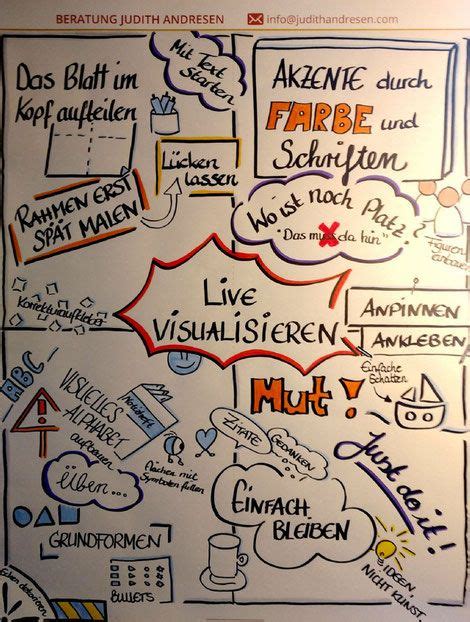 BERATUNG JUDITH ANDRESEN
info@judithandresen.com
Das Blatt im
Kopf aufteilen
Mit Text
starten
AKZENTE durch
FARBE und
Schriften
Lücken
lassen
RAHMEN ERST
SPÄT MALEN
Wo ist noch Platz?
"Das muss da hin"
Figuren
einbauen
Korrekturaufkleber
LIVE
VISUALISIEREN
ANPINNEN
ANKLEBEN
Einfache
Schatten
Mut!
ABC
VISUELLES
ALPHABET
aufbauen
Flächen mit
Symbolen füllen
ZITATE
GEDANKEN
Just do it!
üben...
EINFACH
BLEIBEN
GRUNDFORMEN
IDEEN,
NICHT KUNST.
BULLETS
Ecken dekorieren